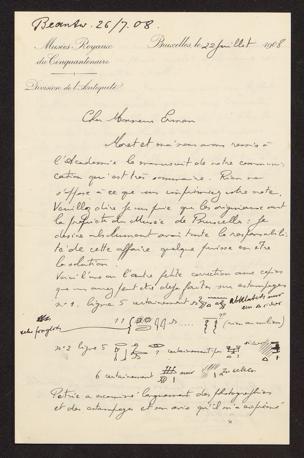 Beantw. 26/7.08.
Musées Royaux
du Cinquantenaire
Division de l'Antiquité
Bruxelles, le 22 juillet 1908
Cher Monsieur Erman
Moret et moi nous avons remis à
l'Académie le manuscrit de notre communi-
cation qui est très sommaire. Rien ne
s'oppose à ce que vous imprimiez votre note.
Veuillez dire je vous prie que les originaux sont
la propriété du Musée de Bruxelles : je
désire absolument avoir toute la responsabili-
té de cette affaire quelque puisse en être
la solution.
Voici l'une ou l'autre petite correction aux copies
que vous avez faites d'après les estampages
n° 1. ligne 5 certainement
n° 2 ligne 5 certainement pas
6 certainement
Petrie a examiné longuement des photographies
et des estampages et son avis qu'il m'a exprimé